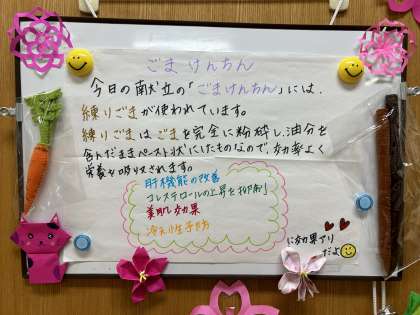 ごまけんちん
今日の献立の「ごまけんちん」には、
練りごまが使われています。
練りごまはごまを完全に粉砕し、油分を
含んだままペースト状にしたものなので、効率よく
栄養を吸収されます。
肝機能の改善
コレステロールの上昇を抑制
美肌効果
冷え性予防
に効果アリ
だよ